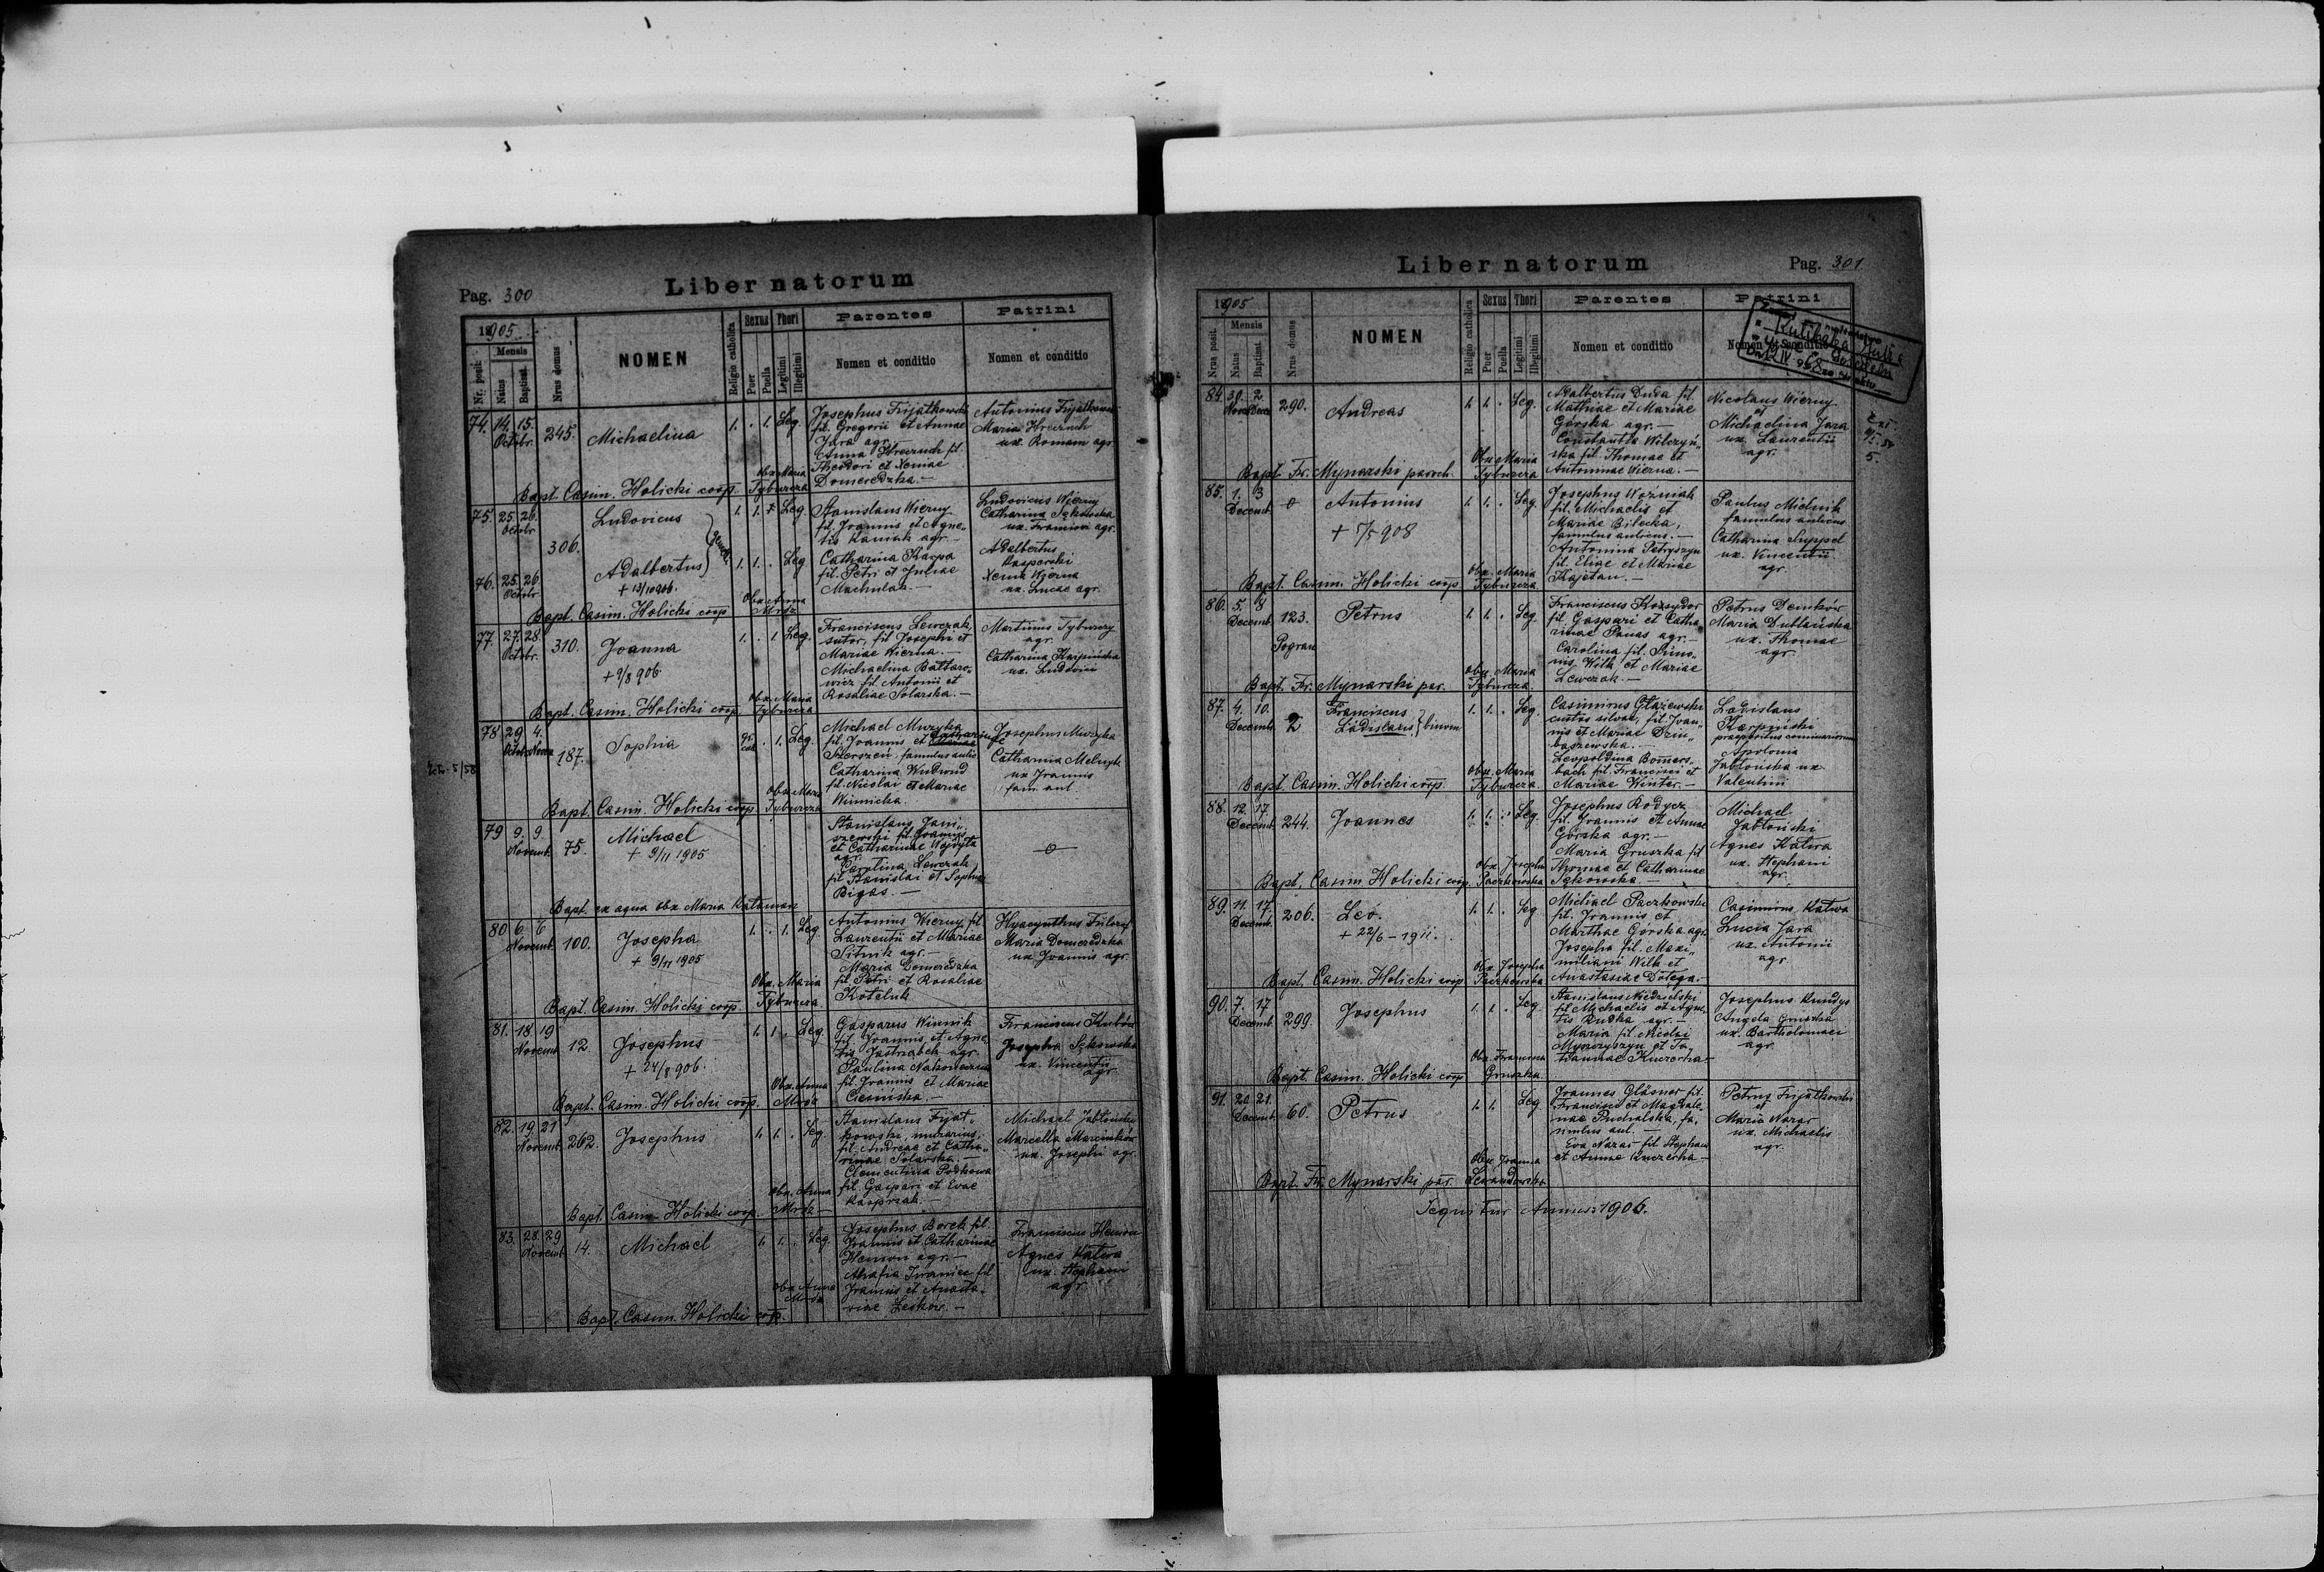 Pag. 300
Liber natorum
1905.
Nr. posit.
Mensis
Natus
Baptisat.
Nrus domus
NOMEN
Religio catholica
Sexus
Puer
Puella
Thori
Legitimi
Illegitimi
Parentes
Nomen et conditio
Patrini
Nomen et conditio
74. 14. 15.
Octobr.
245.
Michaelina
1. . 1. Leg.
Josephus Fijałkowski
fil. Gregorii et Annae
Jara agr. —
Anna Hreczuch fil.
Theodori et Xeniae
Domeredzka. —
Antonius Fijałkowski
Maria Hreczuch
ux. Romani agr.
Obx. Maria
Tyburcza
Bapt. Casim. Holicki coop.
75. 25. 26.
Octobr.
306.
Ludovicus
1. 1. Leg.
Stanislaus Wierny
fil. Joannis et Agne„
tis Kaniak agr. —
Ludovicus Wierny
Catharina Szkowska
ux. agr.
76. 25. 26.
Octobr.
Adalbertus
+ 13/10 906.
1. 1. . Leg.
Catharina Karpa
fil. Petri et Juliae
Machulak. —
Adalbertus
Kasperski
Xenia Wierna
ux. Lucae agr.
Obx. Anna
Mroz
Bapt. Casim. Holicki coop
77. 27. 28.
Octobr.
310.
Joanna
+ 9/8 906.
1. . 1. Leg.
Franciscus Lewczak,
sutor, fil. Josephi et
Mariae Wierna. —
Michaelina Baltaro„
wicz fil. Antonii et
Rosaliae Solarska. —
Martinus Tyburczy
agr.
Catharina Karpińska
ux. Ludovici
Obx. Maria
Tyburcza
Bapt. Casim. Holicki coop
78. 29. 4.
Octobr. Novem.
187.
Sophia
gr. cat. . 1. Leg.
Michael Muzyka
fil. Joannis et Catharinae
Szerszeń, famulus aulic.
Catharina
fil. Nicolai et Mariae
Winnicka.
Josephus Muzyka
Catharina Melnyk
ux. Joannis
fam. aul.
Obx. Maria
Tyburcza
Bapt. Casim. Holicki coop
79 9. 9.
Novemb.
75.
Michael
+ 9/11 1905
Stanislaus Jani„
szewski fil. Joannis
et Catharinae Wojdyła
agr.
Carolina Lewczak
fil. Stanislai et Sophiae
Bigas. —
Bapt. ex aqua obx. Maria
80 6. 6
Novemb.
100.
Josepha
+ 9/11 1905
1. . 1. Leg.
Antonius Wierny fil.
Laurentii et Mariae
Sitnik agr. —
Maria Domeredzka
fil. Petri et Rosaliae
Koteluk
Hyacynthus
Maria Domeredzka
ux. Joannis agr.
Obx. Maria
Tyburcza
Bapt. Casim. Holicki coop.
81. 18 19
Novemb.
12.
Josephus
+ 24/8 906.
1. 1. . Leg.
Gasparus Winnik
fil. Joannis et Agne„
tis Jastrzabek agr.
Paulina
fil. Joannis et Mariae
Ciesińska. —
Franciscus
Josepha Szkowska
ux. Vincentii
agr.
Obx. Anna
Mroz
Bapt. Casim. Holicki coop.
82. 19. 21
Novemb.
262.
Josephus
1. 1. . Leg.
Stanislaus Fijał„
kowski, murarius,
fil. Andreae et Catha„
rinae Solarska. —
Clementina Podkowa
fil. Gaspari et Evae
Kasprzak. —
Michael Jabłoński
Marcella
ux. Josephi agr.
Obx. Anna
Mroz —
Bapt. Casim. Holicki coop.
83. 28. 29
Novemb.
14.
Michael
1. 1. . Leg.
Josephus Borek fil.
Joannis et Catharinae
Hemon agr. —
Ahafia Iwaniec fil.
Joannis et Anasta„
siae Leskow. —
Franciscus Hemon
Agnes Katwa
ux. Stephani
agr.
Obx. Anna
Mroz
Bapt. Casim. Holicki coop.
Liber natorum
Pag. 301
1905
Nrus posit.
Mensis
Natus
Baptisat.
Nrus domus
NOMEN
Religio catholica
Sexus
Puer
Puella
Thori
Legitimi
Illegitimi
Parentes
Nomen et conditio
Patrini
Nomen et conditio
84. 30. 2.
290.
Andreas
1. 1. . Leg.
Adalbertus Duda fil.
Mathiae et Mariae
Górska agr. —
Constantia Wilczyń„
ska fil. Thomae et
Antoninae Wierna. —
Nicolaus Wierny
et
Michaelina Jara
ux. Laurentii
agr.
Obx. Maria
Tyburcza
Bapt. Fr. Mynarski paroch.
85. 1. 3
Decemb.
0
Antonius
+ 7/5 908
1. 1. . Leg.
Josephus Woźniak
fil. Michaelis et
Mariae Bilecka,
famulus aulicus. —
Antonina Petryszyn
fil. Eliae et Mariae
Kajetan. —
Paulus Mielnik
famulus aulicus
Catharina Suppel
ux. Vincentii
agr.
Obx. Maria
Tyburcza
Bapt. Casim. Holicki coop
86. 5. 8
Decemb.
123.
Petrus
1. 1. . Leg.
Franciscus Korsydor
fil. Gaspari et Catha
rinae Panas agr. —
Carolina fil. Simo„
nis Wilk et Mariae
Lewczak. —
Petrus Demków
Maria Dublańska
ux. Thomae
agr.
Obx. Maria
Tyburcza.
Bapt. Fr. Mynarski par.
87. 4. 10.
Decemb.
2
Franciscus
Ladislaus } binom
1. 1. . Leg.
Casimirus Głażewski
custos silvae, fil. Joan„
nis et Mariae Dziu„
baszewska. —
Leopoldina Bomers„
bach fil. Francisci et
Mariae Winter. —
Ladislaus
Karpiński
Apolonia
Jabłońska ux.
Valentini
Obx. Maria
Tyburcza.
Bapt. Casim. Holicki coop.
88. 12. 17.
Decemb.
244.
Joannes
1. 1. . Leg.
Josephus Rodycz
fil. Joannis et Annae
Górska agr. —
Maria Gruszka fil
Thomae et Catharinae
Szkowska. —
Michael
Jabłoński
Agnes Katwa
ux. Stephani
agr.
Obx. Josepha
Paczkowska
Bapt. Casim. Holicki coop.
89. 11. 17.
Decemb.
206.
Leo.
+ 22/6 - 1911.
1. 1. . Leg
Michael Paczkowski
fil. Joannis et
Marthae Górska agr.
Josepha fil. Maxi„
miliani Wilk et
Anastasiae Dołęga. —
Casimirus Katwa
Lucia Jara
ux. Antonii
agr.
Obx. Josepha
Paczkowska
Bapt. Casim. Holicki coop
90. 7. 17
Decemb.
299.
Josephus
1. 1. . Leg.
Stanislaus Niedzielski
fil. Michaelis et Agne„
tis Ruska agr. —
Maria fil. Nicolai
Myszczyszyn et Ta„
tiannae Kuczerha —
Josephus Kundys
Angela Gruszka
ux. Bartholomaei
agr.
Obx. Francisca
Gruszka
Bapt. Casim. Holicki coop
91. 20. 21.
Decemb.
60.
Petrus
1. 1. Leg.
Joannes Gläsner fil.
Francisci et Magdale„
nae Puchalska, fa„
mulus aul. —
Eva Nazar fil. Stephani
et Annae Kuczerha —
Petrus Fijałkowski
et
Maria Nazar
ux. Michaelis
agr.
Obx. Joanna
Bapt. Fr. Mynarski par.
Sequitur Annus: 1906.